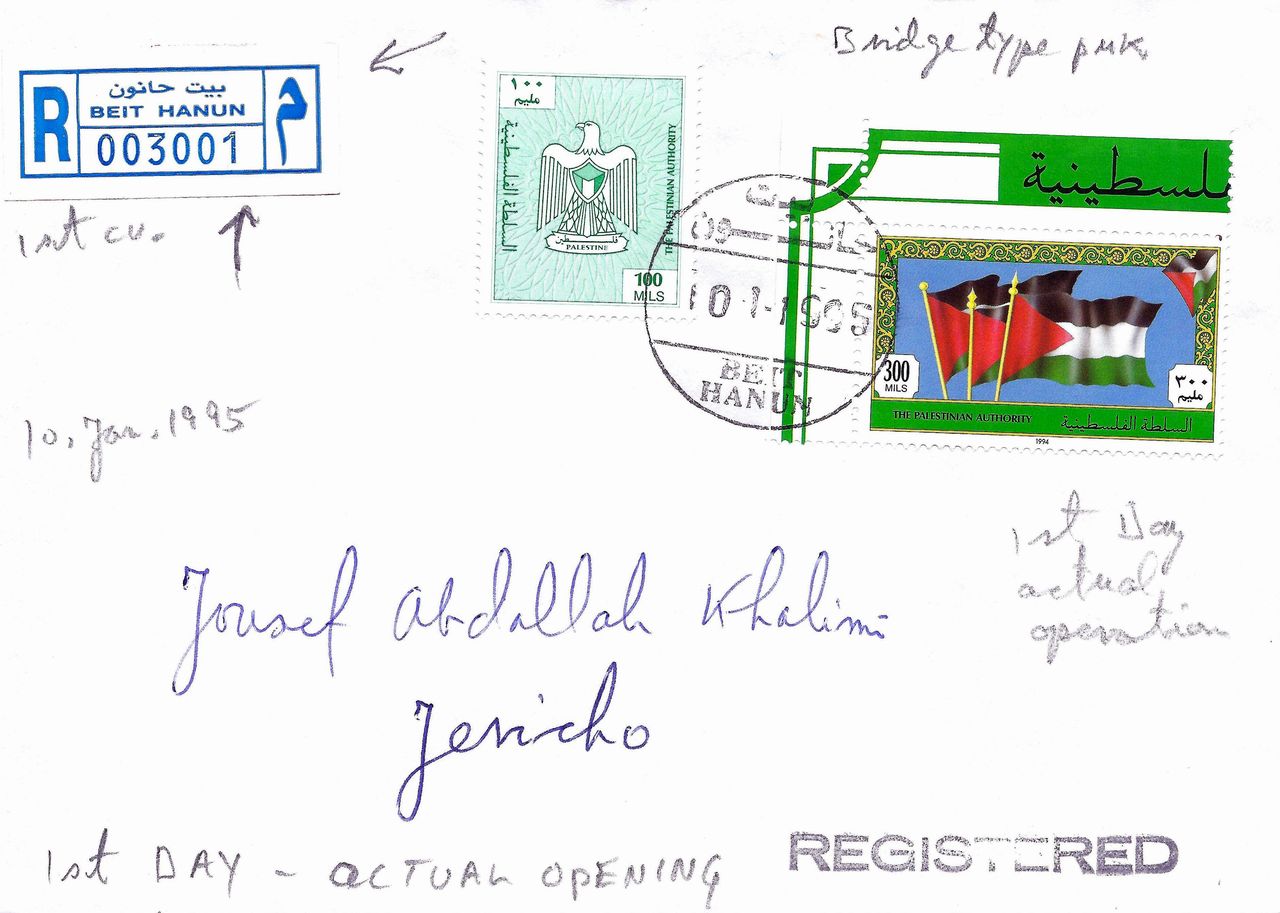 Bridge type pmk.
R
بيت حانون
BEIT HANUN
003001
م
1st cv.
10. Jan. 1995
١٠٠
مليم
السلطة الفلسطينية
THE PALESTINIAN AUTHORITY
فلسطين
PALESTINE
100
MILS
بيت
حانون
10-1-1995
BEIT
HANUN
فلسطينية
300
MILS
٣٠٠
مليم
THE PALESTINIAN AUTHORITY
السلطة الفلسطينية
1994
1st Day
actual
operation
Yousef Abdallah Khalimi
Jericho
1st DAY - ACTUAL OPENING
REGISTERED